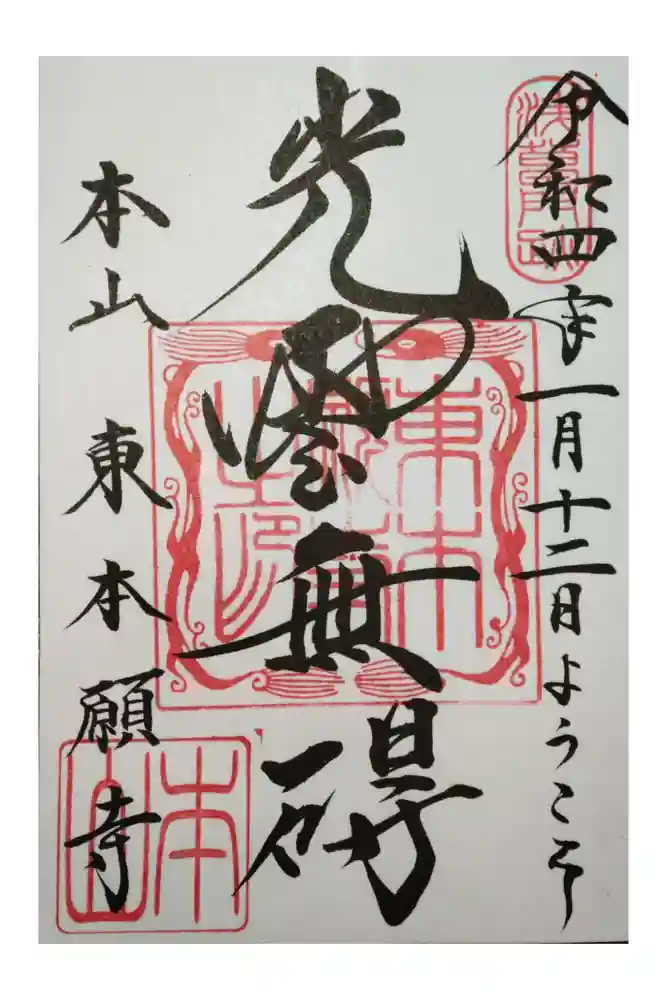 令和四年一月十二日ようこそ
光雲無碍
本山 東本願寺
浅草門跡
東本願寺之印
本山